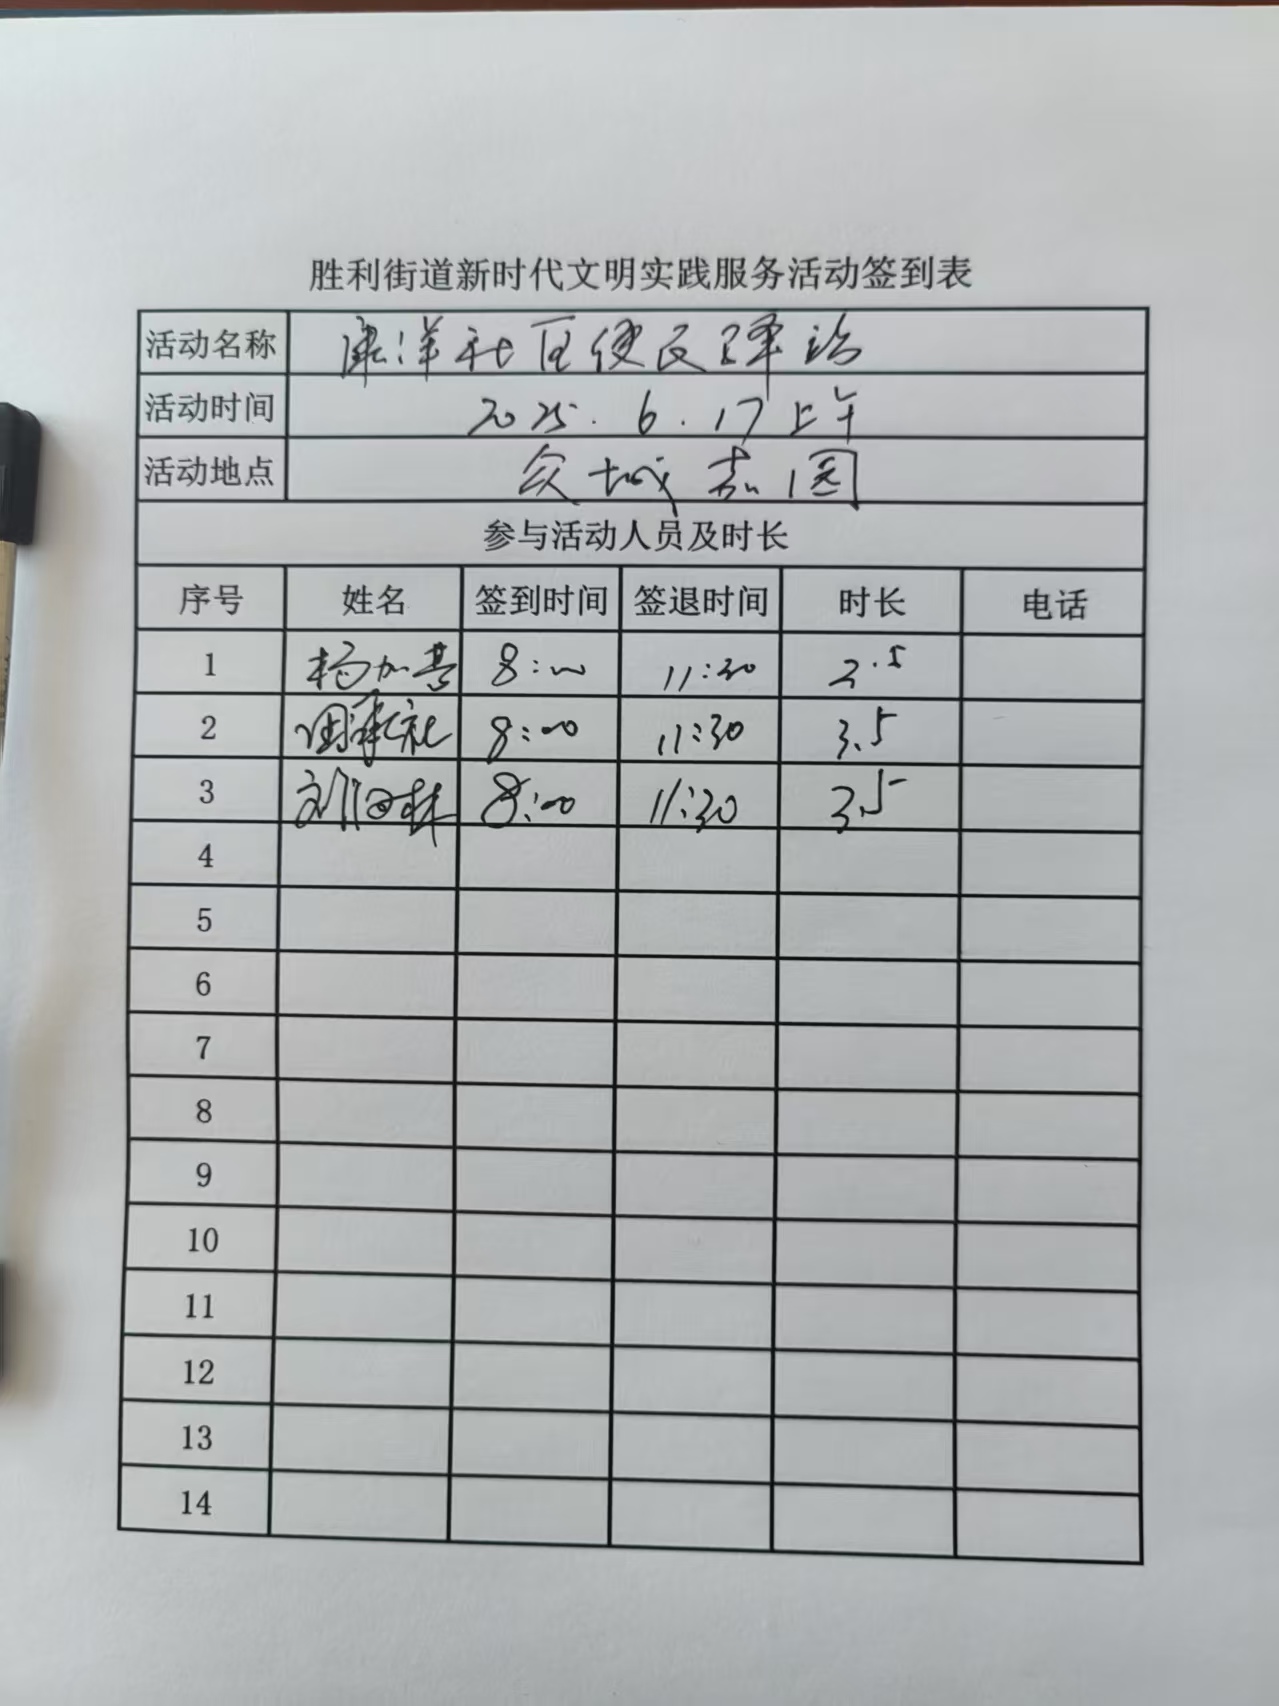 胜利街道新时代文明实践服务活动签到表
活动名称 康洋社区便民驿站
活动时间 2025.6.17上午
活动地点 众城嘉园
参与活动人员及时长
序号 姓名 签到时间 签退时间 时长 电话
1 杨加 8:00 11:30 3.5
2 周承社 8:00 11:30 3.5
3 刘汉林 8:00 11:30 3.5
4
5
6
7
8
9
10
11
12
13
14